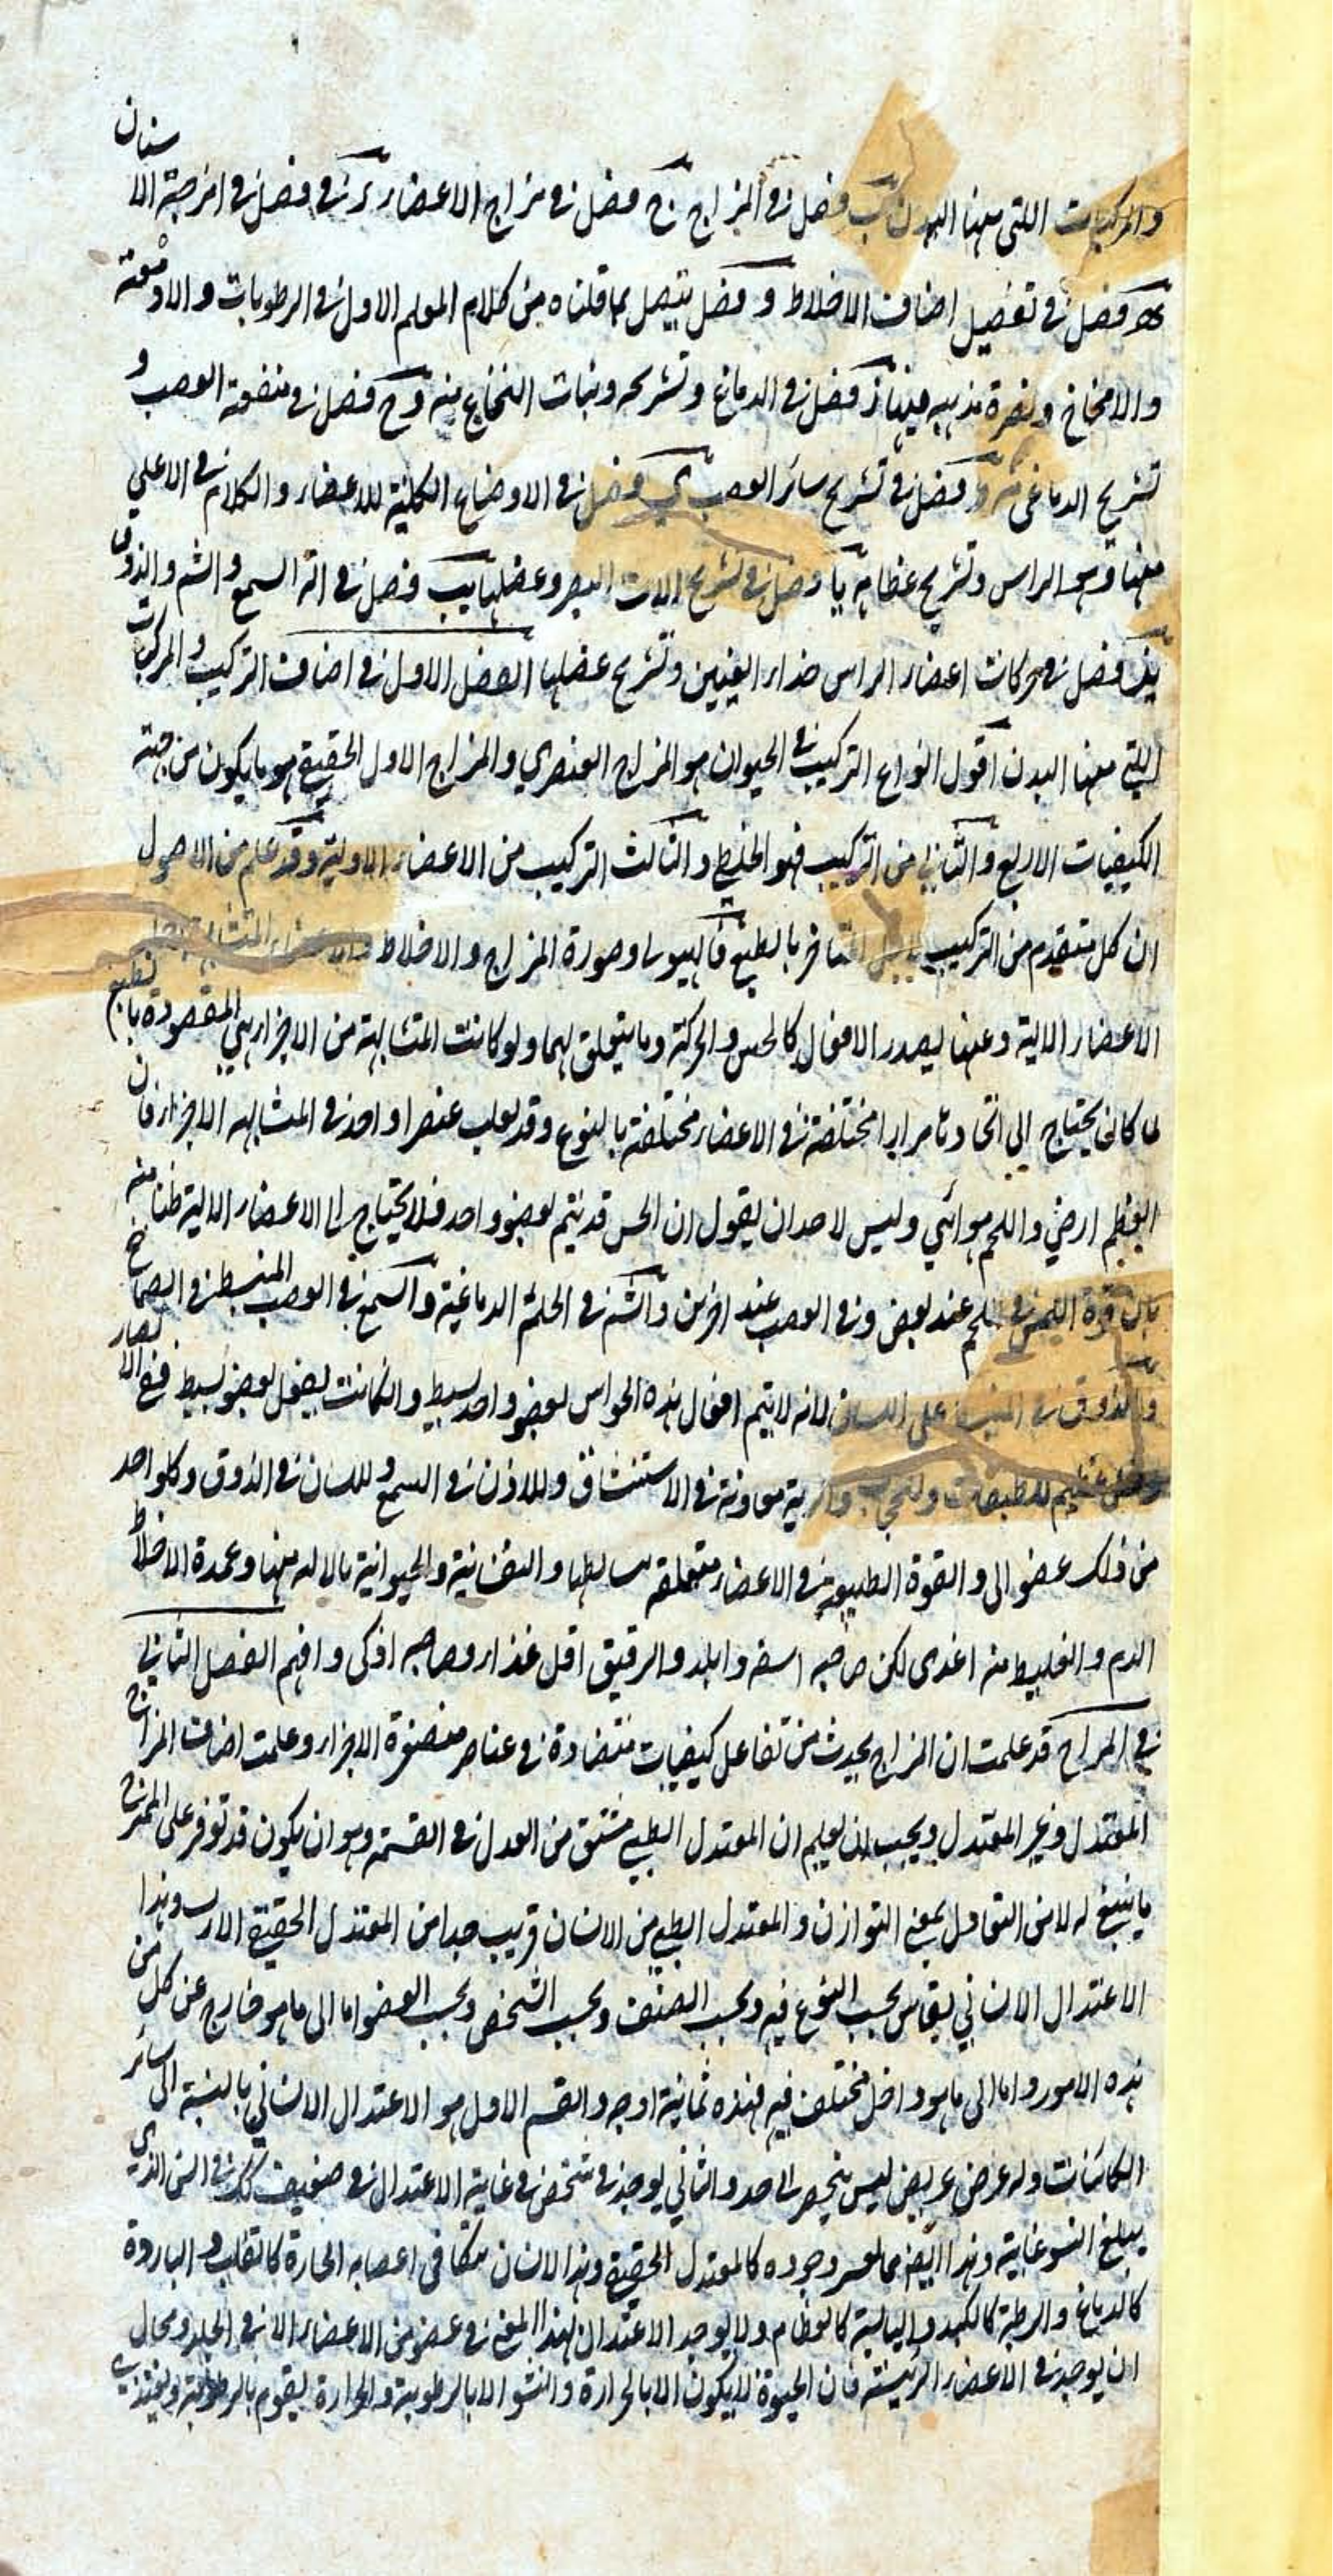 والمركبات اللتى معها البدن ب فصل فى المزاج ج فصل فى مزاج الاعضاء د فصل فى امزجة الاسنان
ه فصل فى تفصيل اصناف الاخلاط و فصل يتصل بما قلناه من كلام المعلم الاول فى الرطوبات والادمغة
والامخاخ ونصرة مذهبه فيها ز فصل فى الدماغ وتشريحه ونبات النخاع منه ح فصل فى منفعة العصب و
تشريح الدماغى منه ط فصل فى تشريح سائر العصب ى فصل فى الاوضاع الكلية للاعضاء والكلام فى الاعلى
منها وهو الراس وتشريح عظامه يا فصل فى تشريح الات البصر وعضلها يب فصل فى الة السمع والشم والذوق
يج فصل فى حركات اعضاء الراس خداء العينين وتشريح عضلها الفصل الاول فى اصناف التركيب والمركبات
اللتى معها البدن اقول انواع التركيب فى الحيوان هو المزاج العنصري والمزاج الاول الحقيقى هو ما يكون من جهة
الكيفيات الاربع والثانى من التركيب فهو الخلط والثالث التركيب من الاعضاء الاولية وقد علم من الاصول
ان كل متقدم من التركيب المتاخر بالطبع فالهيولى وصورة المزاج والاخلاط
الاعضاء الالية وعنها يصدر الافعال كالحس والحركة وما يتعلق بهما ولو كانت المتشابهة من الاجزاء هى المقصودة بالطبع
لما كان يحتاج الى اتحاد مختلفة فى الاعضاء مختلفة بالنوع وقد يغلب عنصر واحد فى المتشابهه الاجزاء فان
العظم ارضي واللحم هوائي وليس لاحد ان يقول ان الحس قد يتم بعضو واحد فلا يحتاج الى الاعضاء الالية ظنا منه
بان قوة اللمس فى اللحم عند بعض وفى العصب عند اخرين والشم فى الحلمة الدماغية والسمع فى العصب المنبسط فى الصماخ
والذوق فى على اللسان لانه لا يتم افعال هذه الحواس بعضو واحد بسيط وان كانت بفعل بعضو بسيط ففى الابصار
للطبقات وللحجب والرية معاونة فى الاستنشاق وللاذن فى السمع وللسان فى الذوق وكل واحد
من ذلك عضو الى والقوة الطبيعية فى الاعضاء متعلقة ببسايطها والنفسانية والحيوانية بالاله منها وعمدة الاخلاط
الدم والغليظ منه اغذى لكن صاحبه اسفه وابلد والرقيق اقل غذاء وصاحبه اذكى وافهم الفصل الثانى
فى المزاج قد علمت ان المزاج يحدث من تفاعل كيفيات متضادة فى عناصر متصغرة الاجزاء وعلمت اصناف المزاج
المعتدل وغير المعتدل ويجب ان يعلم ان المعتدل الطبى مشتق من العدل فى القسمة وهو ان يكون قد توفر على الممتزج
ما ينبغى له لا من التعادل بمعنى التوازن والمعتدل الطبى من الانسان قريب جدا من المعتدل الحقيقى وهذا
الاعتدال الانساني يقاس بحسب النوع فيه وبحسب الصنف وبحسب الشخص وبحسب العضو اما الى ما هو خارج عن كل من
هذه الامور واما الى ما هو داخل مختلف فيه فهذه ثمانية اوجه والقسم الاول هو الاعتدال الانساني بالنسبة الى سائر
الكائنات وله عرض عريض ليس ينحصر الى حد والثاني يوجد فى شخص فى غاية الاعتدال فى صنف كك فى السن الذي
يبلغ النشو غايته وهذا ايضا مما يعسر وجوده كالمعتدل الحقيقى وهذا الانسان يتكافى اعضايه الحارة كالقلب والباردة
كالدماغ والرطبة كالكبد واليابسة كالعظام ولا يوجد الاعتدال بهذا المعنى فى عضو من الاعضاء الا فى الجلد ومحال
ان يوجد فى الاعضاء الرئيسة فان الحيوة لا يكون الا بالحرارة والنشو الا بالرطوبة والحرارة يقوم بالرطوبة ويغتذي